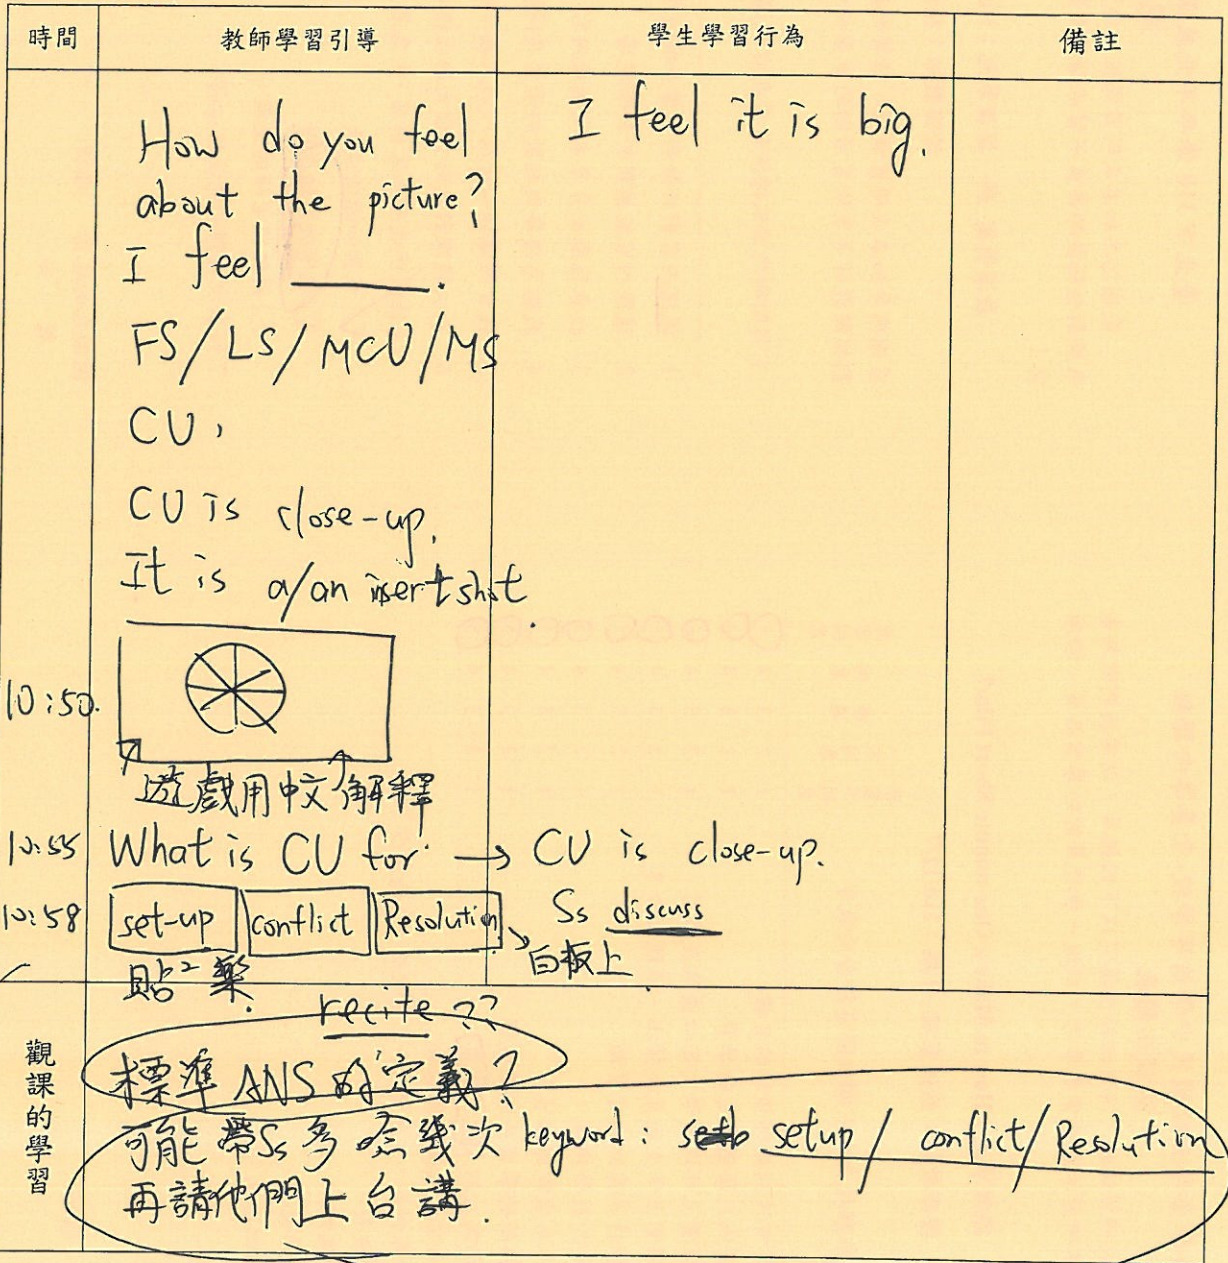 時間 教師學習引導 學生學習行為 備註
How do you feel
about the picture?
I feel ______.
I feel it is big.
FS/LS/MCU/MS
CU,
CU is close-up.
It is a/an insert shot.
10:50.
遊戲用中文解釋
10:55 What is CU for → CU is close-up.
10:58 set-up conflict Resolution Ss discuss
白板上
貼2樂
recite??
觀課的學習
標準ANS的定義?
可能帶Ss多唸幾次 keyword: setup/conflict/Resolution
再請他們上台講.